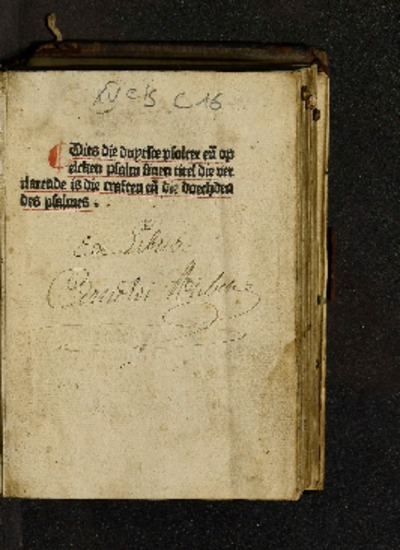 C 16
Dits die duytsce psalter eñ op
elcken psalm sinen titel die ver
clarende is die craften eñ die doechden
des psalmes .
ex Libris